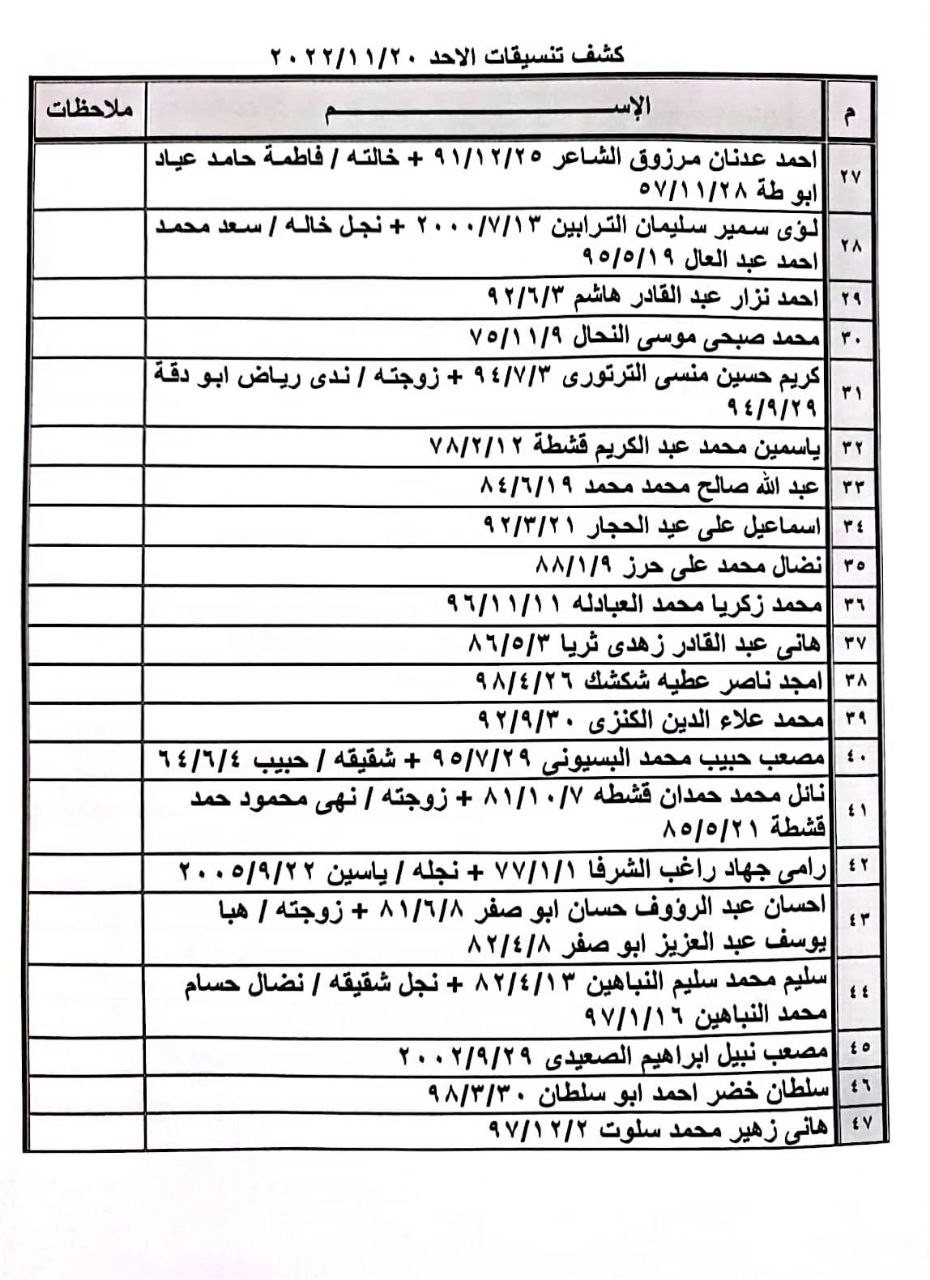 كشف تنسيقات الاحد ٢٠٢٢/١١/٢٠
م الإســـم ملاحظات
٢٧ احمد عدنان مرزوق الشاعر ٩١/١٢/٢٥ + خالته / فاطمة حامد عياد
ابو طة ٥٧/١١/٢٨
٢٨ لؤى سمير سليمان الترابين ٢٠٠٠/٧/١٣ + نجل خاله / سعد محمد
احمد عبد العال ٩٥/٥/١٩
٢٩ احمد نزار عبد القادر هاشم ٩٢/٦/٣
٣٠ محمد صبحى موسى النحال ٧٥/١١/٩
٣١ كريم حسين منسى الترتورى ٩٤/٧/٣ + زوجته / ندى رياض ابو دقة
٩٤/٩/٢٩
٣٢ ياسمين محمد عبد الكريم قشطة ٧٨/٢/١٢
٣٣ عبد الله صالح محمد محمد ٨٤/٦/١٩
٣٤ اسماعيل على عيد الحجار ٩٢/٣/٢١
٣٥ نضال محمد على حرز ٨٨/١/٩
٣٦ محمد زكريا محمد العبادله ٩٦/١١/١١
٣٧ هانى عبد القادر زهدى ثريا ٨٦/٥/٣
٣٨ امجد ناصر عطيه شكشك ٩٨/٤/٢٦
٣٩ محمد علاء الدين الكنزى ٩٢/٩/٣٠
٤٠ مصعب حبيب محمد البسيونى ٩٥/٧/٢٩ + شقيقه / حبيب ٦٤/٦/٤
٤١ نائل محمد حمدان قشطه ٨١/١٠/٧ + زوجته / نهى محمود حمد
قشطة ٨٥/٥/٢١
٤٢ رامى جهاد راغب الشرفا ٧٧/١/١ + نجله / ياسين ٢٠٠٥/٩/٢٢
٤٣ احسان عبد الرؤوف حسان ابو صفر ٨١/٦/٨ + زوجته / هبا
يوسف عبد العزيز ابو صفر ٨٢/٤/٨
٤٤ سليم محمد سليم النباهين ٨٢/٤/١٣ + نجل شقيقه / نضال حسام
محمد النباهين ٩٧/١/١٦
٤٥ مصعب نبيل ابراهيم الصعيدى ٢٠٠٢/٩/٢٩
٤٦ سلطان خضر احمد ابو سلطان ٩٨/٣/٣٠
٤٧ هانى زهير محمد سلوت ٩٧/١٢/٢